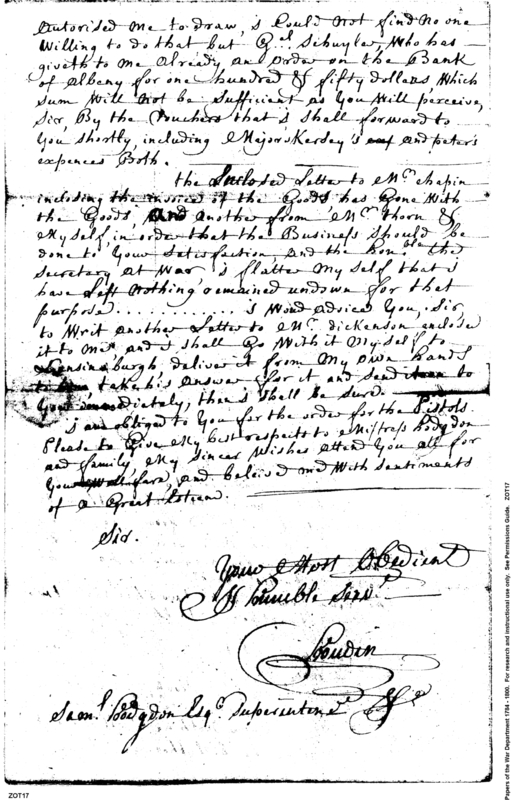 Autorised Me to draw, i Could Not find No one
Willing to do that but Gel Schuyler, Who has
giveth to Me Already An order on the Bank
of Albany for one hundred & fifty dollars, Which
sum Will Not be Sufficient as You Will perceive,
Sir, By the Vouchers that i shall forward to
You shortly, including Major Kersey's and peters
expences Both.
the Inclosed Letter to Mr chapin
inclosing the invoice of the Goods has Gone With
the Goods, And another from Mr thorn &
My self, in order that the Business should be
done to Your Satisfaction, and the Honble the
secretary At War i flatter My self that i
have Left Nothing remained undown for that
purpose.............. i Woud advice You, Sir,
to Writ another Letter to Mr dickenson enclose
it to Me and i shall Go With it My self to
Lansinsburgh, deliver it from My own hands
take his answer for it and send to
You immediately, that i shall be sure.
i am obliged to You for the order for the Pistols
Please to Give My best respects to Mistress hodgdon
and family, My sincer Wishes Attend You all for
Your Wellfare, and beleived me With sentiments
of a Great Esteem.
Sir.
Your Most Obedient
H humble Serv
Louden
Saml Hodgdon Esqr Superintend &c
ZOT17
Papers of the War Department 1784 - 1800. For research and instructional use only. See Permissions Guide. ZOT17